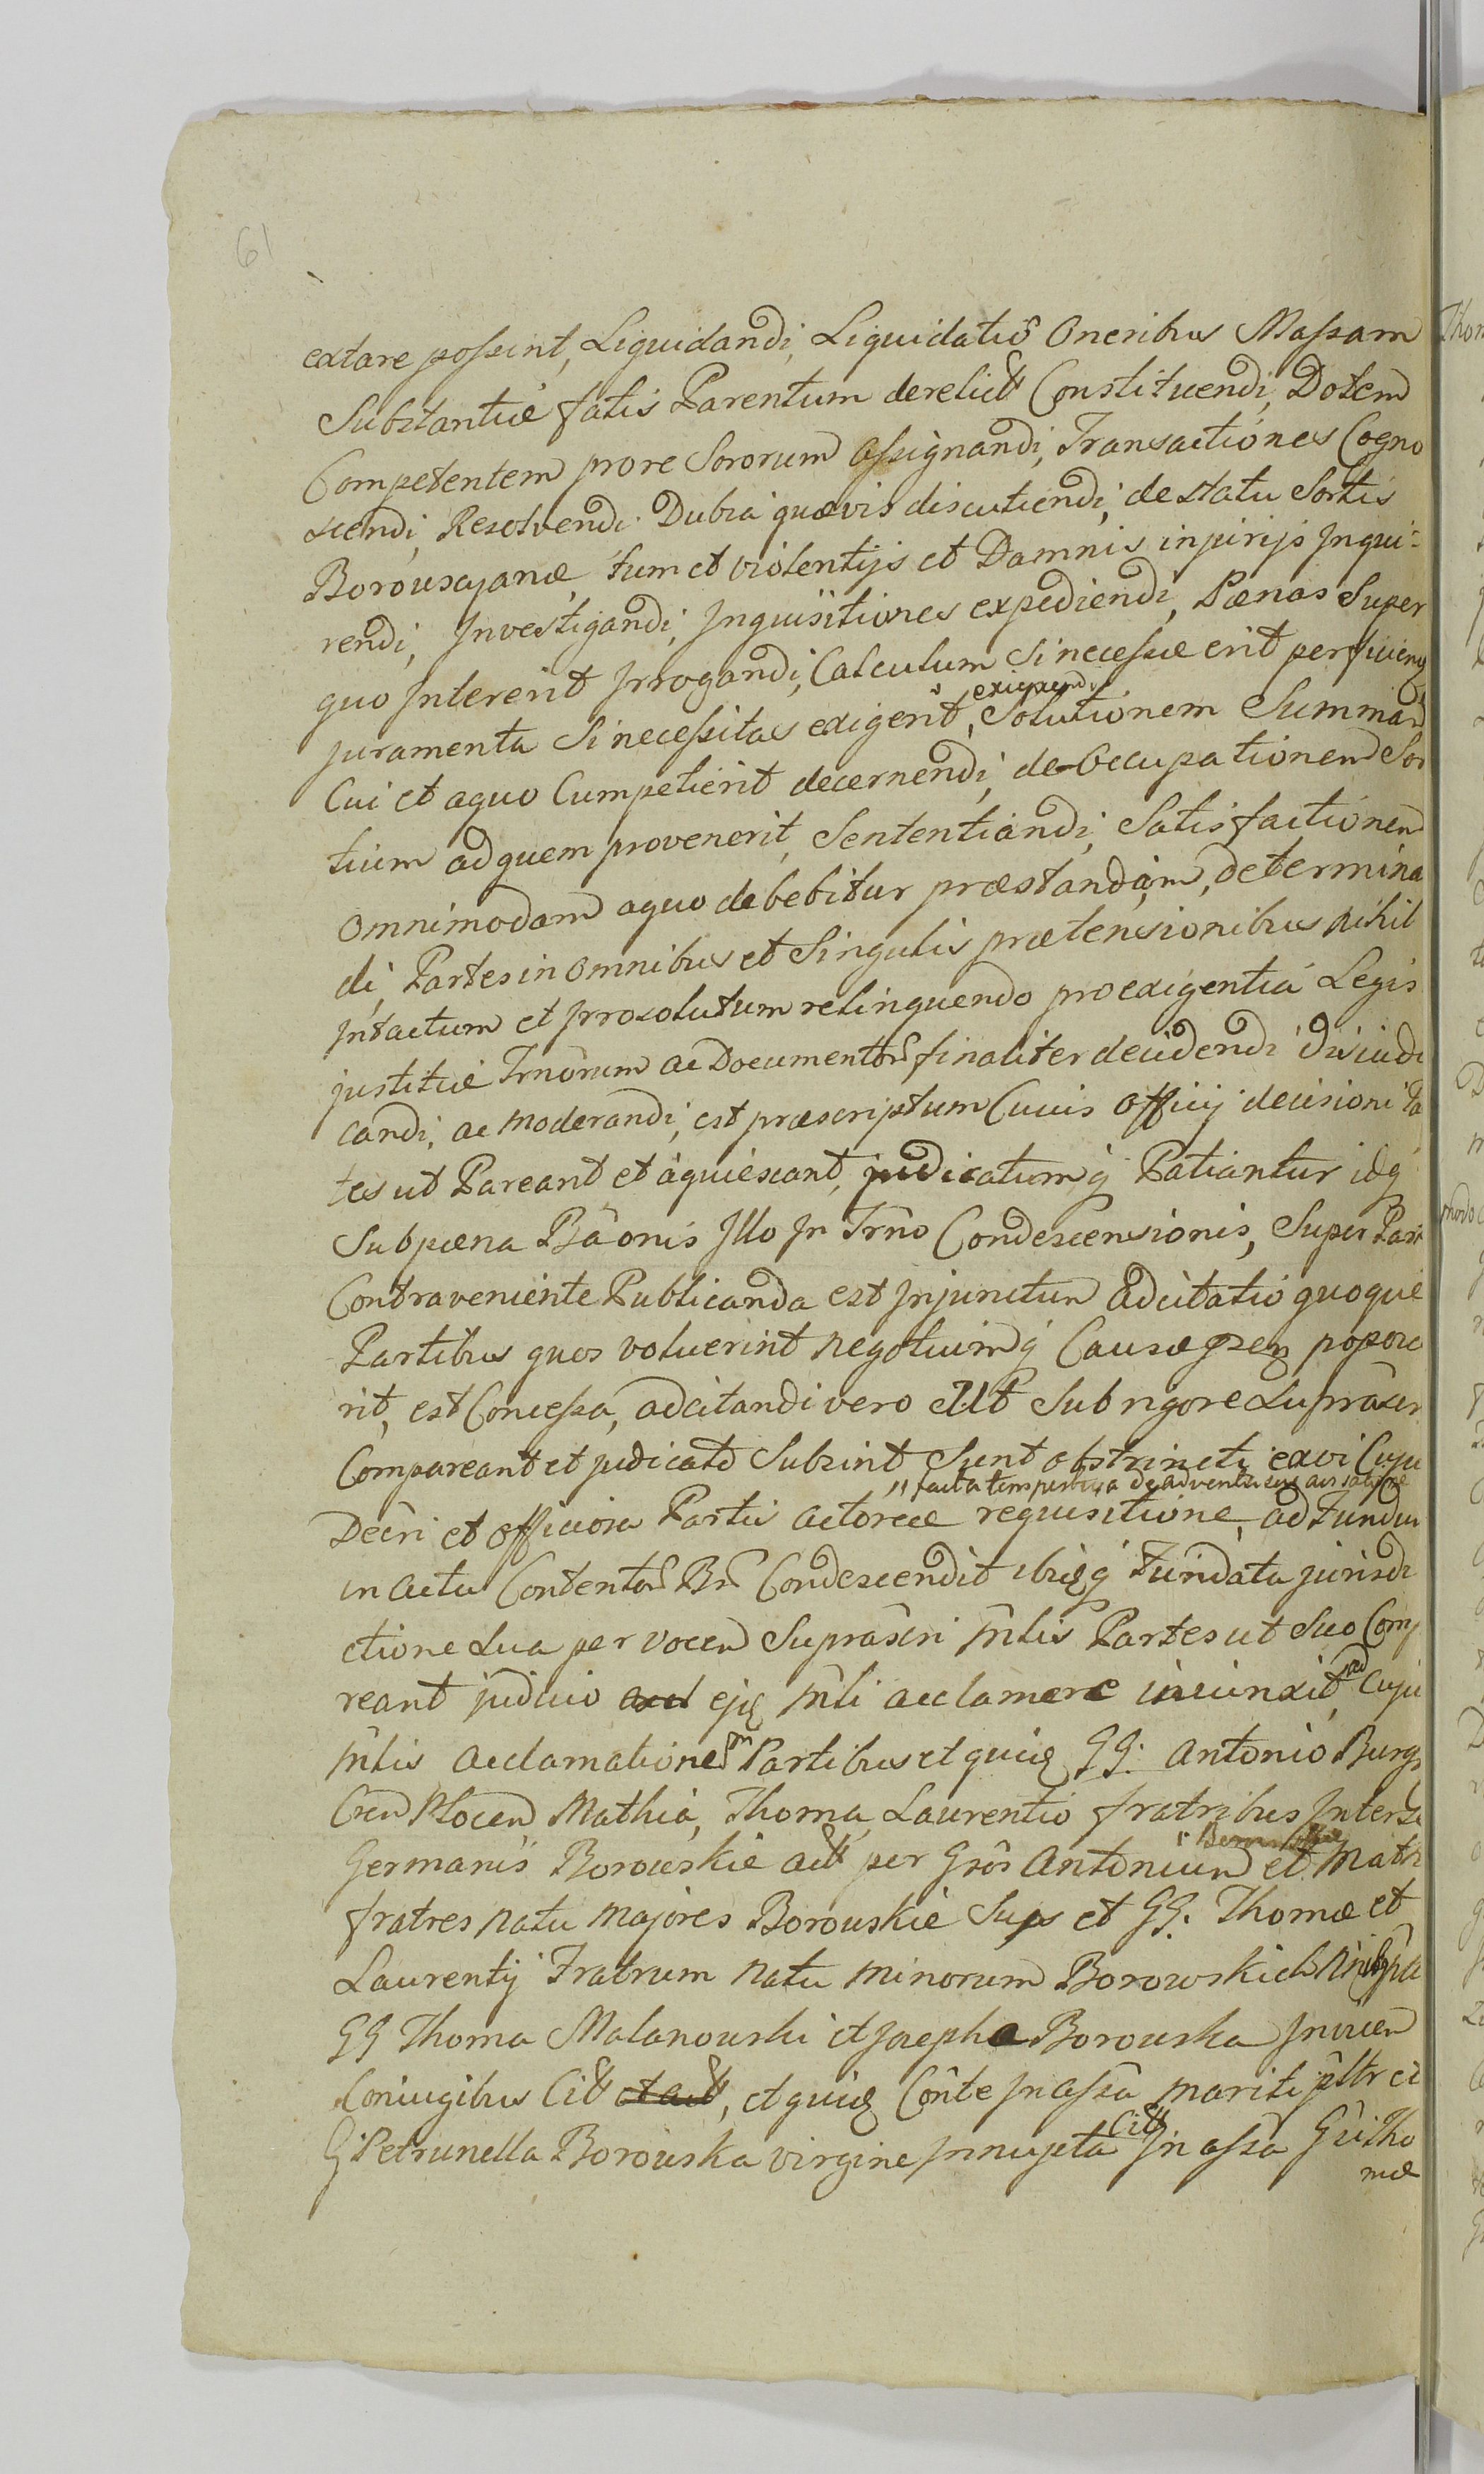 61
extare possint, Liquidandi, Liquidatis Oneribus Massam
Substantiæ fatis Parentum derelict Constituendi, Dotem
Competentem pro re Sororum assignandi, Transactiones Cogno
scendi, Resolvendi Dubia quævis discutiendi, de statu Sortis
Borouscyanæ, tum et violentijs et Damnis injurijs Inqui-
rendi, Investigandi, Inquisitiones expediendi, Pænas Super
quo Intererit Irrogandi, Calculum si necessæ erit perficiend
exigendi
juramenta Si necessitas exigerit, Solutionem Summar
Cui et a quo Cumpetierit decernendi, de Occupationem Sor
tium ad quem provenerit, Sententiandi, Satisfactionem
omnimodam a quo debebitur præstandam, determina
di, Partes in omnibus et Singulis prætensionibus nihil
Intactum et Irrosolutum relinquendo pro exigentia Legis
justitiæ Trnorum ac Documentor finaliter decidendi dijudi
candi, ac moderandi, est præscriptum Cuius Officij decisioni Pa
tes ut Pareant et aquiescant, judicatumq Patiantur idq
Sub pæna Baonis Illo In Trno Condescensionis, Super Part
Contraveniente Publicanda est Injunctum adcitatio quoque
Partibus quos voluerint negotiumq Causæ popos
rit, est Concessa, adcitandi vero Ut Sub rigore
Compareant et judicato Subsint Sunt obstricti, ex vi Cuju
facta tempestiva de adventu suo
Decri et Officiosa Partis actoreæ requisitione, ad Fundum
in actu Contentor Br Condescendit ibiq Fundata jurisdi
ctione Sua per vocem Suprascri Mlis Partes ut Suo Com
reant judicio ejq Mli acclamare iniunxit, ad Cuju
Mlis acclamationem Partibus et quiq GG. Antonio Burg
Cren Plocen Mathia, Thoma, Laurentio fratribus Inter se
Germanis Borouskie act per Gros Antonium et Math
fratres natu majores Borouskie Sups et GG. Thomæ et
Laurentij Fratrum natu minorum Borowskich
GG Thoma Malanouski et Josepha Borouska Invicem
Coniugibus Cit et act, et quiq Conte In assa mariti
Cit
G Petrunella Borouska virgine Innupta In assa Gsi Tho
mæ